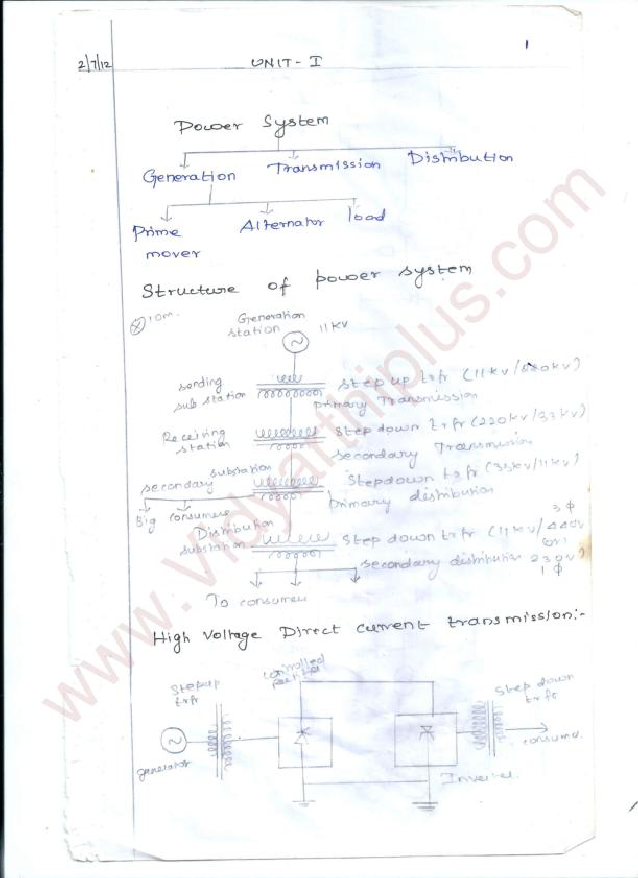 1
2/7/12
UNIT - I
Power System
Generation Transmission Distribution
Prime mover Alternator load
Structure of power system
10m.
Generation station 11 KV
sending sub station
Step up trfr (11kv/220kv)
primary Transmission
Receiving station
Step down trfr (220kv/33kv)
secondary Transmission
secondary substation
Stepdown trfr (33kv/11kv)
primary distribution
Big consumers
Distribution substation
step down trfr (11kv/440v 3φ
secondary distribution 230v)
1 φ
To consumer
High Voltage Direct current transmission:-
Stepup trfr
controlled
Step down trfr
generator
consumer.
Inverter
www.vidyarthiplus.com